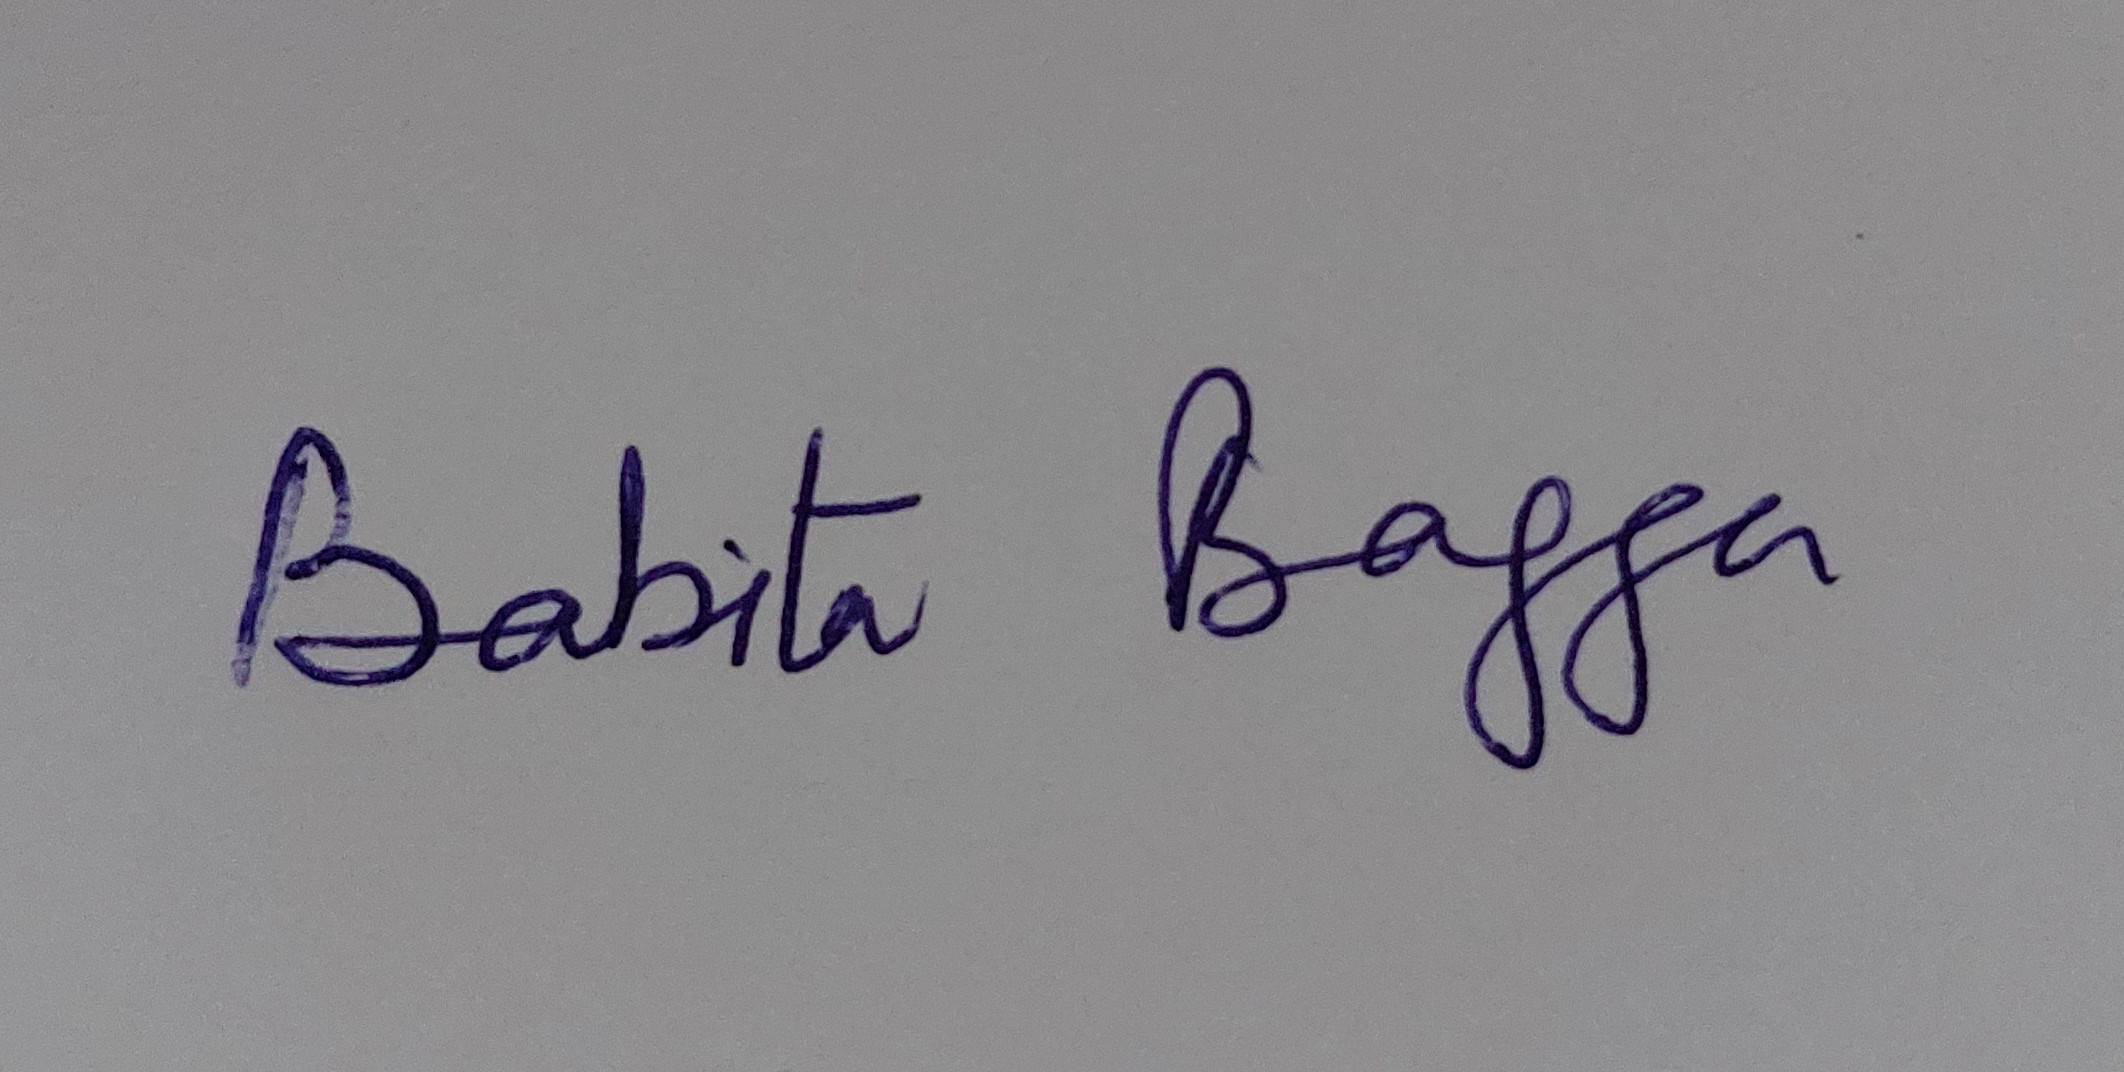 Babita Bagga